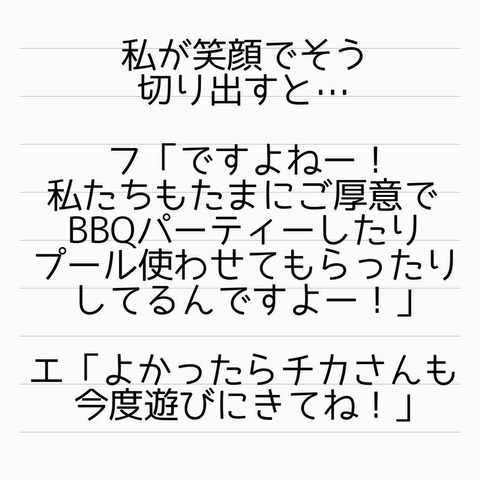 私が笑顔でそう
切り出すと…
フ「ですよねー！
私たちもたまにご厚意で
BBQパーティーしたり
プール使わせてもらったり
してるんですよー！」
エ「よかったらチカさんも
今度遊びにきてね！」